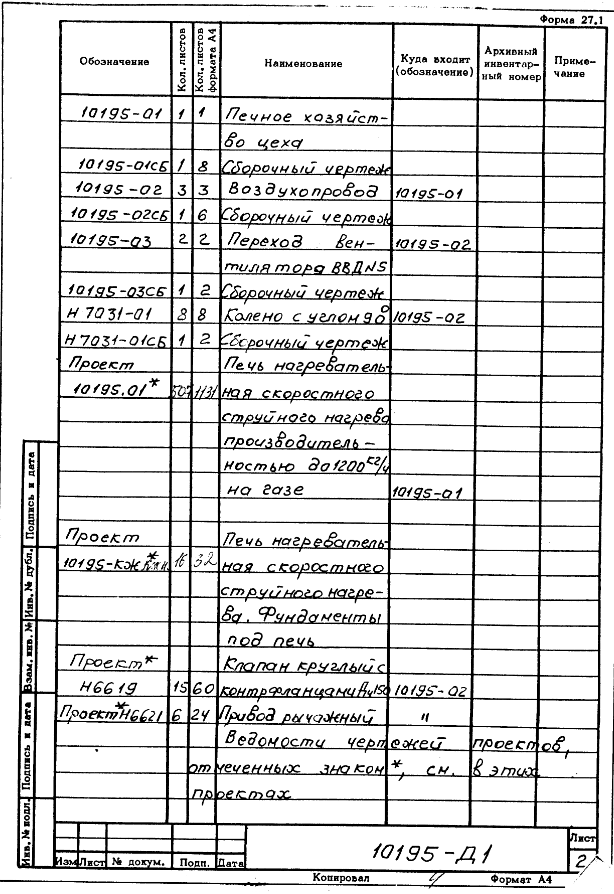 Форма 27.1
Обозначение Кол. листов Кол. листов формата А4 Наименование Куда входит (обозначение) Архивный инвентарный номер Примечание
10195-01 1 1 Печное хозяйст-
во цеха
10195-01СБ 1 8 Сборочный чертеж
10195-02 3 3 Воздухопровод 10195-01
10195-02СБ 1 6 Сборочный чертеж
10195-03 2 2 Переход вен- 10195-02
тилятора ВВД№5
10195-03СБ 1 2 Сборочный чертеж
Н7031-01 8 8 Колено с углом 90° 10195-02
Н7031-01СБ 1 2 Сборочный чертеж
Проект Печь нагреватель-
10195.01* 507 1131 ная скоростного
струйного нагрева
производитель-
ностью до 1200 кг/ч
на газе 10195-01
Проект Печь нагреватель-
10195-КЖ* 16 32 ная скоростного
струйного нагре-
ва. Фундаменты
под печь
Проект* Клапан круглый с
Н6619 15 60 контрфланцами Ду150 10195-02
Проект*Н6621 6 24 Привод рычажный "
Ведомости чертежей проектов,
отмеченных знаком *, см. в этих
проектах
Подпись и дата
Инв. № дубл.
Взам. инв. №
Подпись и дата
Инв. № подл.
10195-Д1
Лист
2
Изм Лист № докум. Подп. Дата
Копировал Формат А4